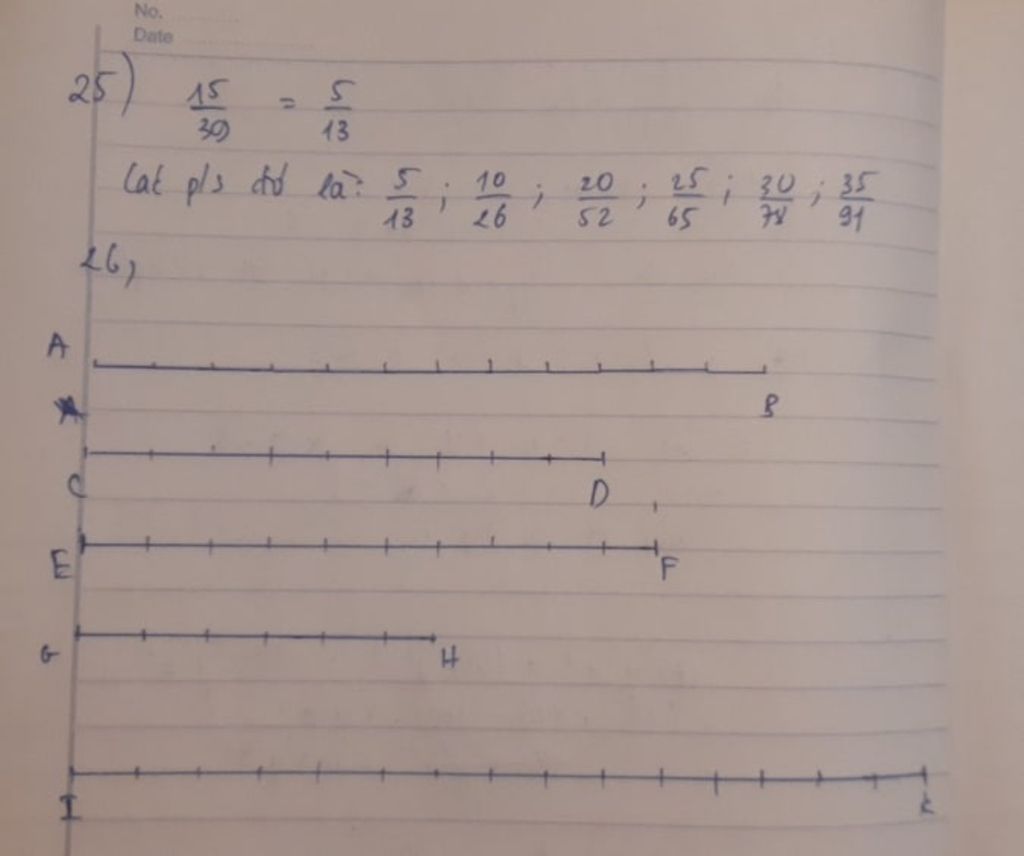 No.
Date
25) 15/39 = 5/13
Các p/s đó là: 5/13 ; 10/26 ; 20/52 ; 25/65 ; 30/78 ; 35/91
26,
A
B
C D
E F
G H
I K